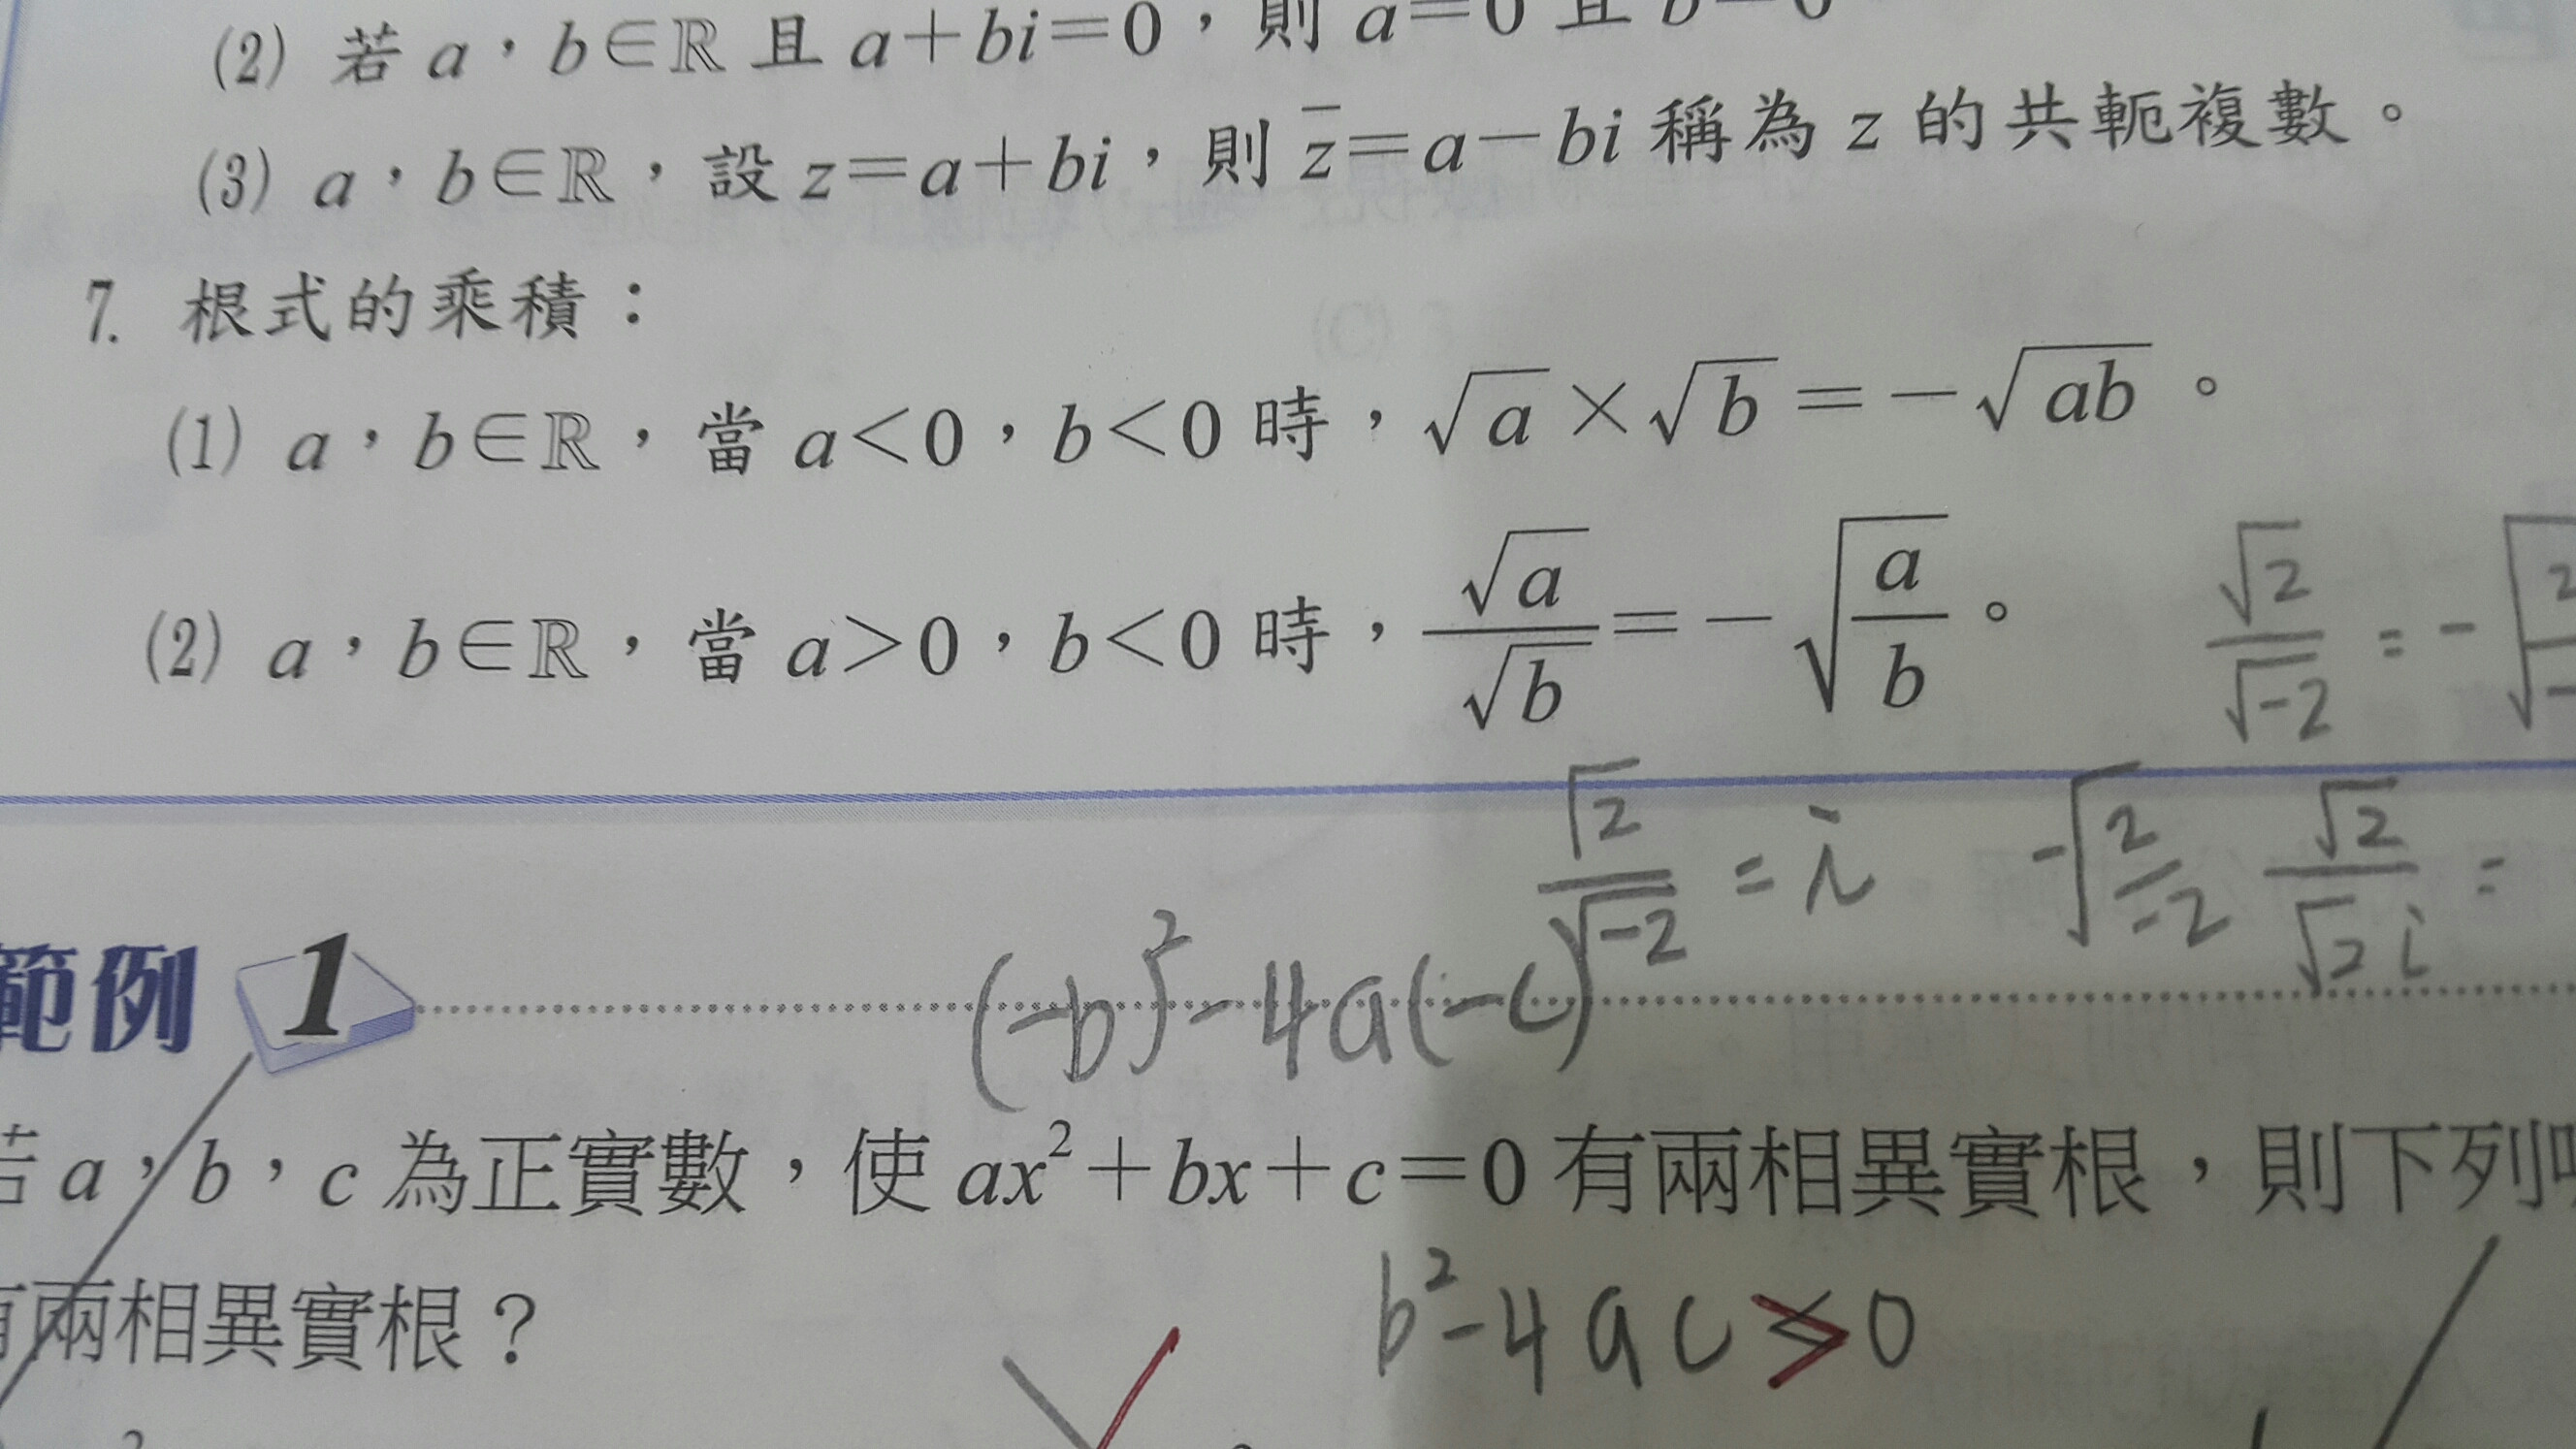 (2) 若 a，b∈ℝ 且 a+bi=0，則 a=0 且 b=0
(3) a，b∈ℝ，設 z=a+bi，則 z̅=a−bi 稱為 z 的共軛複數。
7. 根式的乘積：
(1) a，b∈ℝ，當 a<0，b<0 時，√a×√b=−√ab。
(2) a，b∈ℝ，當 a>0，b<0 時，√a/√b=−√(a/b)。
√2/√-2 = -√2/-
√2/√-2 = i
-√(2/-2) √2/√2i =
範例 1
(-b)²-4a(-c)
若 a，b，c 為正實數，使 ax²+bx+c=0 有兩相異實根，則下列
有兩相異實根？
b²-4ac>0